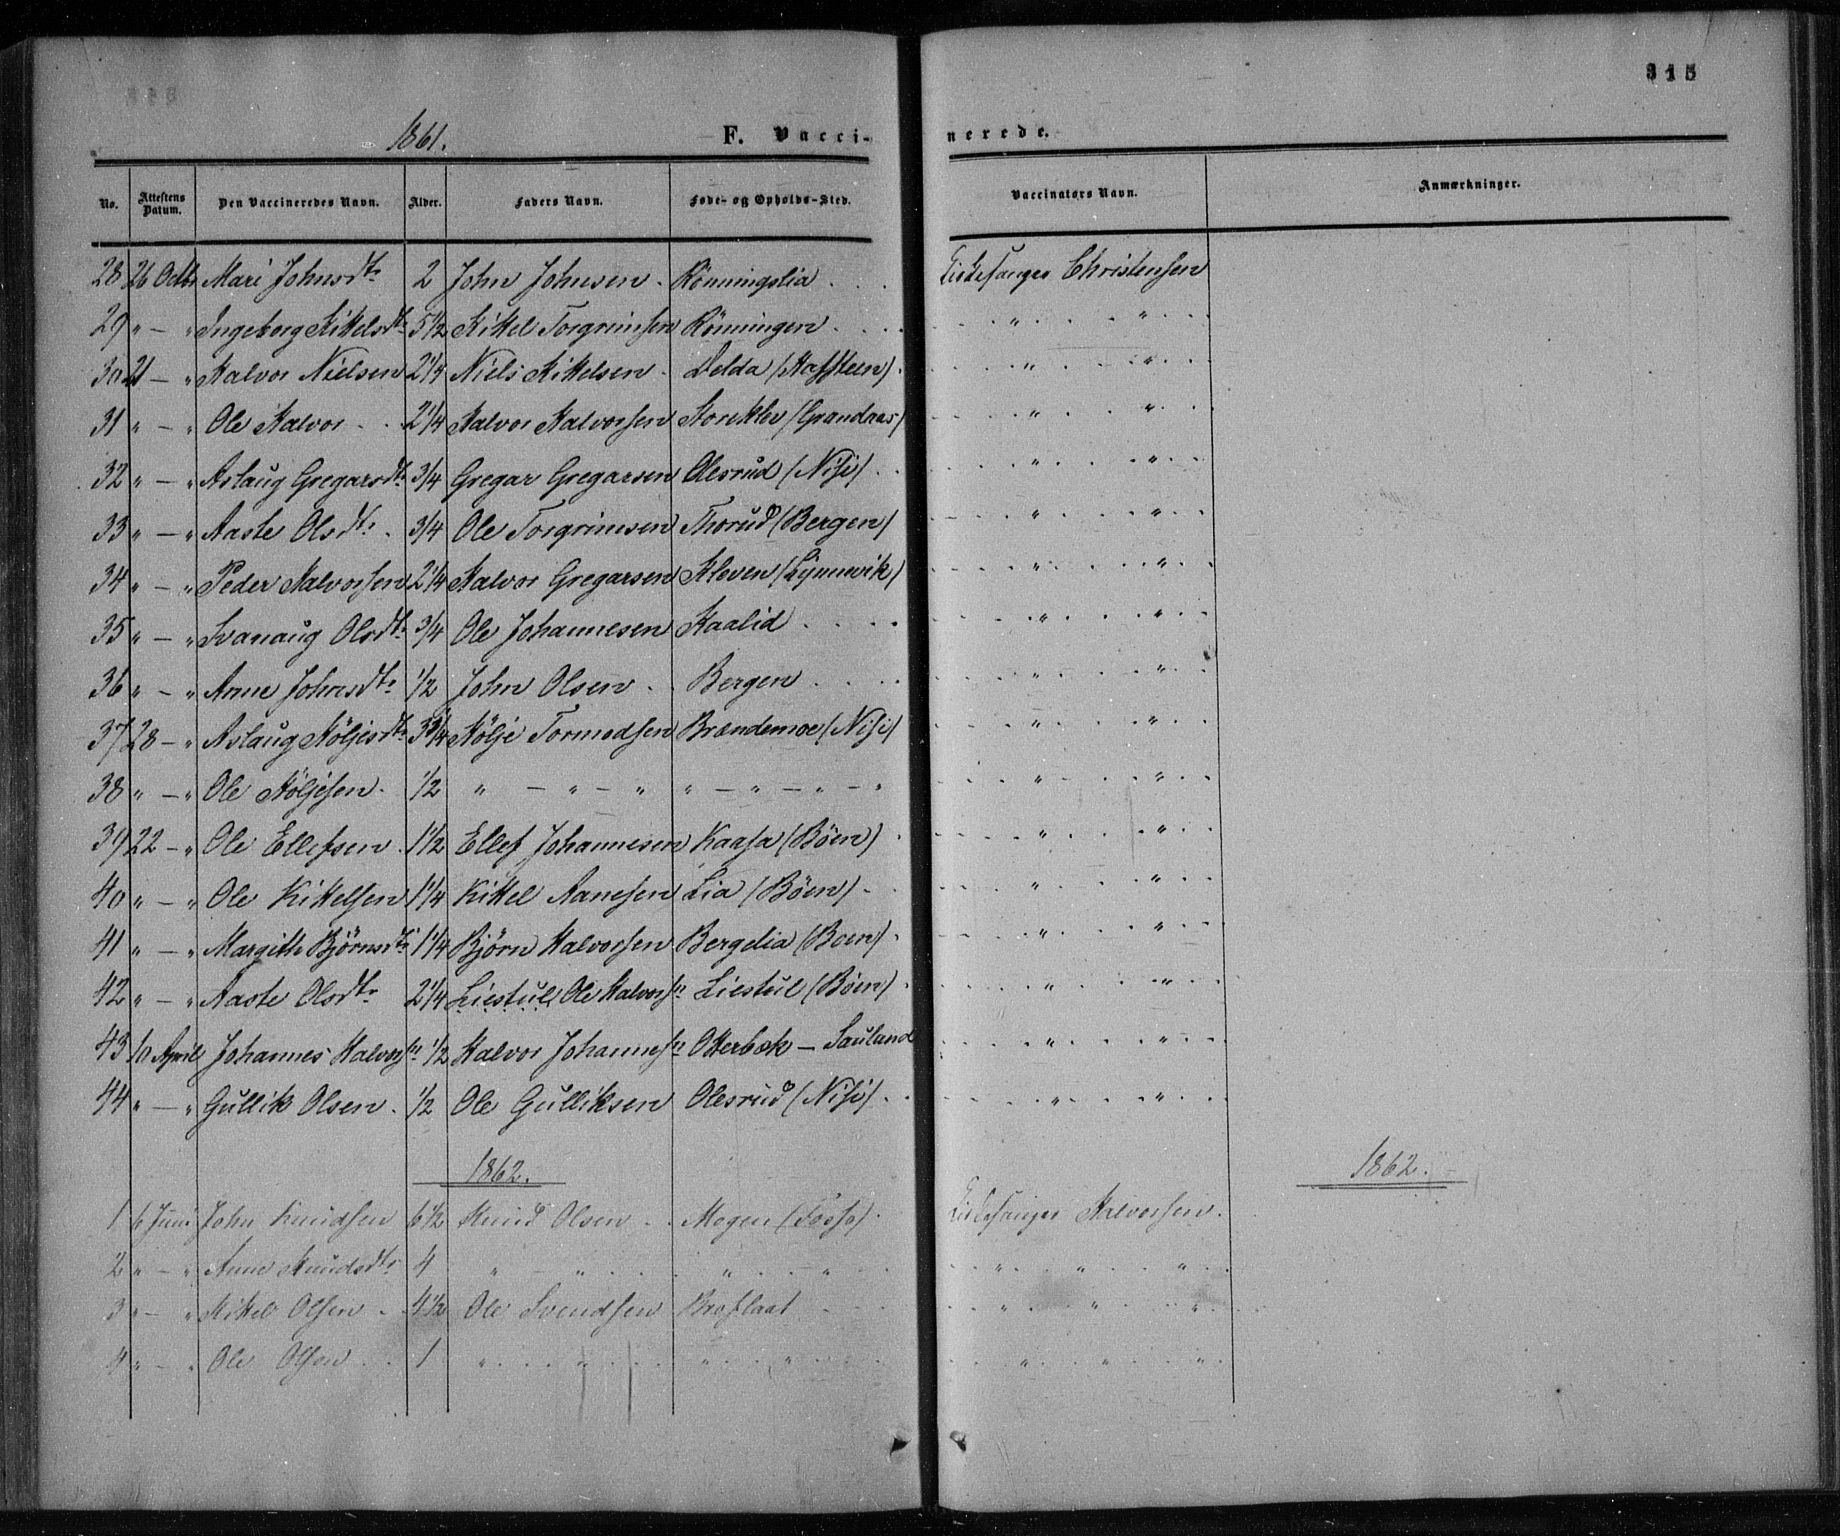 315
1861.
F. Vacci-
nerede.
No. Attestens Datum. Den Vaccineredes Navn. Alder. Faders Navn. Føde- og Opholds-Sted. Vaccinators Navn. Anmærkninger.
28 26 Octbr Mari Johnsdtr 2 John Johnsen . Rönningslia . . . Kirkesanger Christensen
29 " — " Ingeborg Kikelsdtr 5½ Kikel Torgrimsen Rönningen . . . . " . . " . .
30 21 — " Halvor Nielsen 2¼ Niels Kittelsen . Delda (Haffsteen) . . " . . " . .
31 " — " Ole Halvor . . 2¼ Halvor Halvorsen Storeklev (Grandaas) . . " . . " . .
32 " — " Aslaug Gregarsdtr ¾ Gregar Gregarsen Olesrud (Nisi) . . " . . " . .
33 " — " Aaste Olsdtr . ¾ Ole Torgrimsen Thorud (Bergen) . . " . . " . .
34 " — " Peder Halvorsen 2¼ Halvor Gregarsen Kleven (Lynnevik) . . " . . " . .
35 " — " Svanaug Olsdtr ¾ Ole Johannesen Haalid . . . . " . . " . .
36 " — " Anne Johnsdtr ½ John Olsen . Bergen . . . . " . . " . .
37 28 — " Aslaug Höljesdtr 3¾ Hölje Tormodsen Brændemoe (Nisi) . . " . . " . .
38 " — " Ole Höljesen . ½ " — " — " " — " — " — " . . " . . " . .
39 22 — " Ole Ellefsen . 1½ Ellef Johannesen Kaasa (Böen) . . " . . " . .
40 " — " Ole Kittelsen 1¼ Kittel Aanesen Lia (Böen) . . " . . " . .
41 " — " Margith Björnsdtr 1¼ Björn Halvorsen Bergelia (Boen) . . " . . " . .
42 " — " Aaste Olsdtr 2¼ Liestul, Ole Halvorsn Liestul (Böen) . . " . . " . .
43 10 April Johannes Halvorsn ½ Halvor Johannesn Otterbek — Sauland . . " . . " . .
44 " — " Gullik Olsen . ½ Ole Gulliksen Olesrud (Nisi) . . " . . " . .
1862. 1862.
1 6 Juni John Knudsen 6½ Knud Olsen . . Mogen (Fosso) . Kirkesanger Halvorsen .
2 " — " Anne Knudsdtr 4 " — " . . . " . . " . . " . . " . . " . .
3 " — " Kikel Olsen . 4½ Ole Svendsen Brosflaat . . . " . . " . . " . .
4 " — " Ole Olsen . . 1 " . . . " . . . " . . . " . . . " . . " . . " .